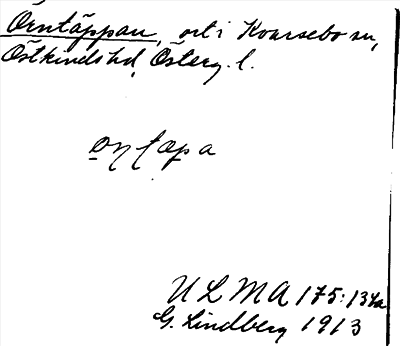 Örntäppan, ort i Kvarsebo sn,
Östkinds hd, Österg. l.
U L M A 175:134a
G. Lindberg 1913